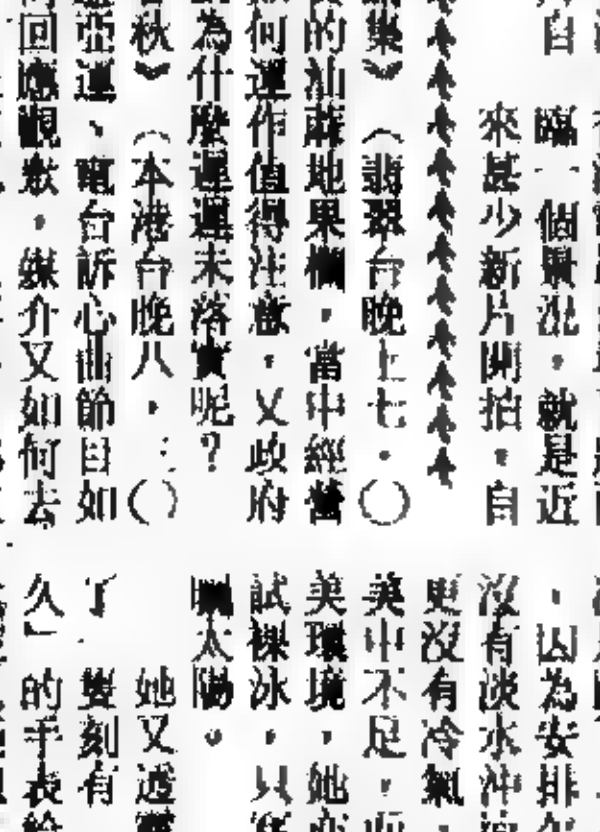 臨一個景況，就是近
來甚少新片開拍，自
集》（翡翠台晚上七．〇
的油麻地果欄，當中經營
何運作值得注意，又政府
為什麼遲遲未落實呢？
秋》（本港台晚八．三〇
亞運、電台訴心曲節目如
回應觀眾，媒介又如何去
，因為安排
沒有淡水沖
更沒有冷氣
美中不足，而
美環境，她亦
試裸泳，只
曬太陽。
她又透露
了 雙刻有
久」的手表給